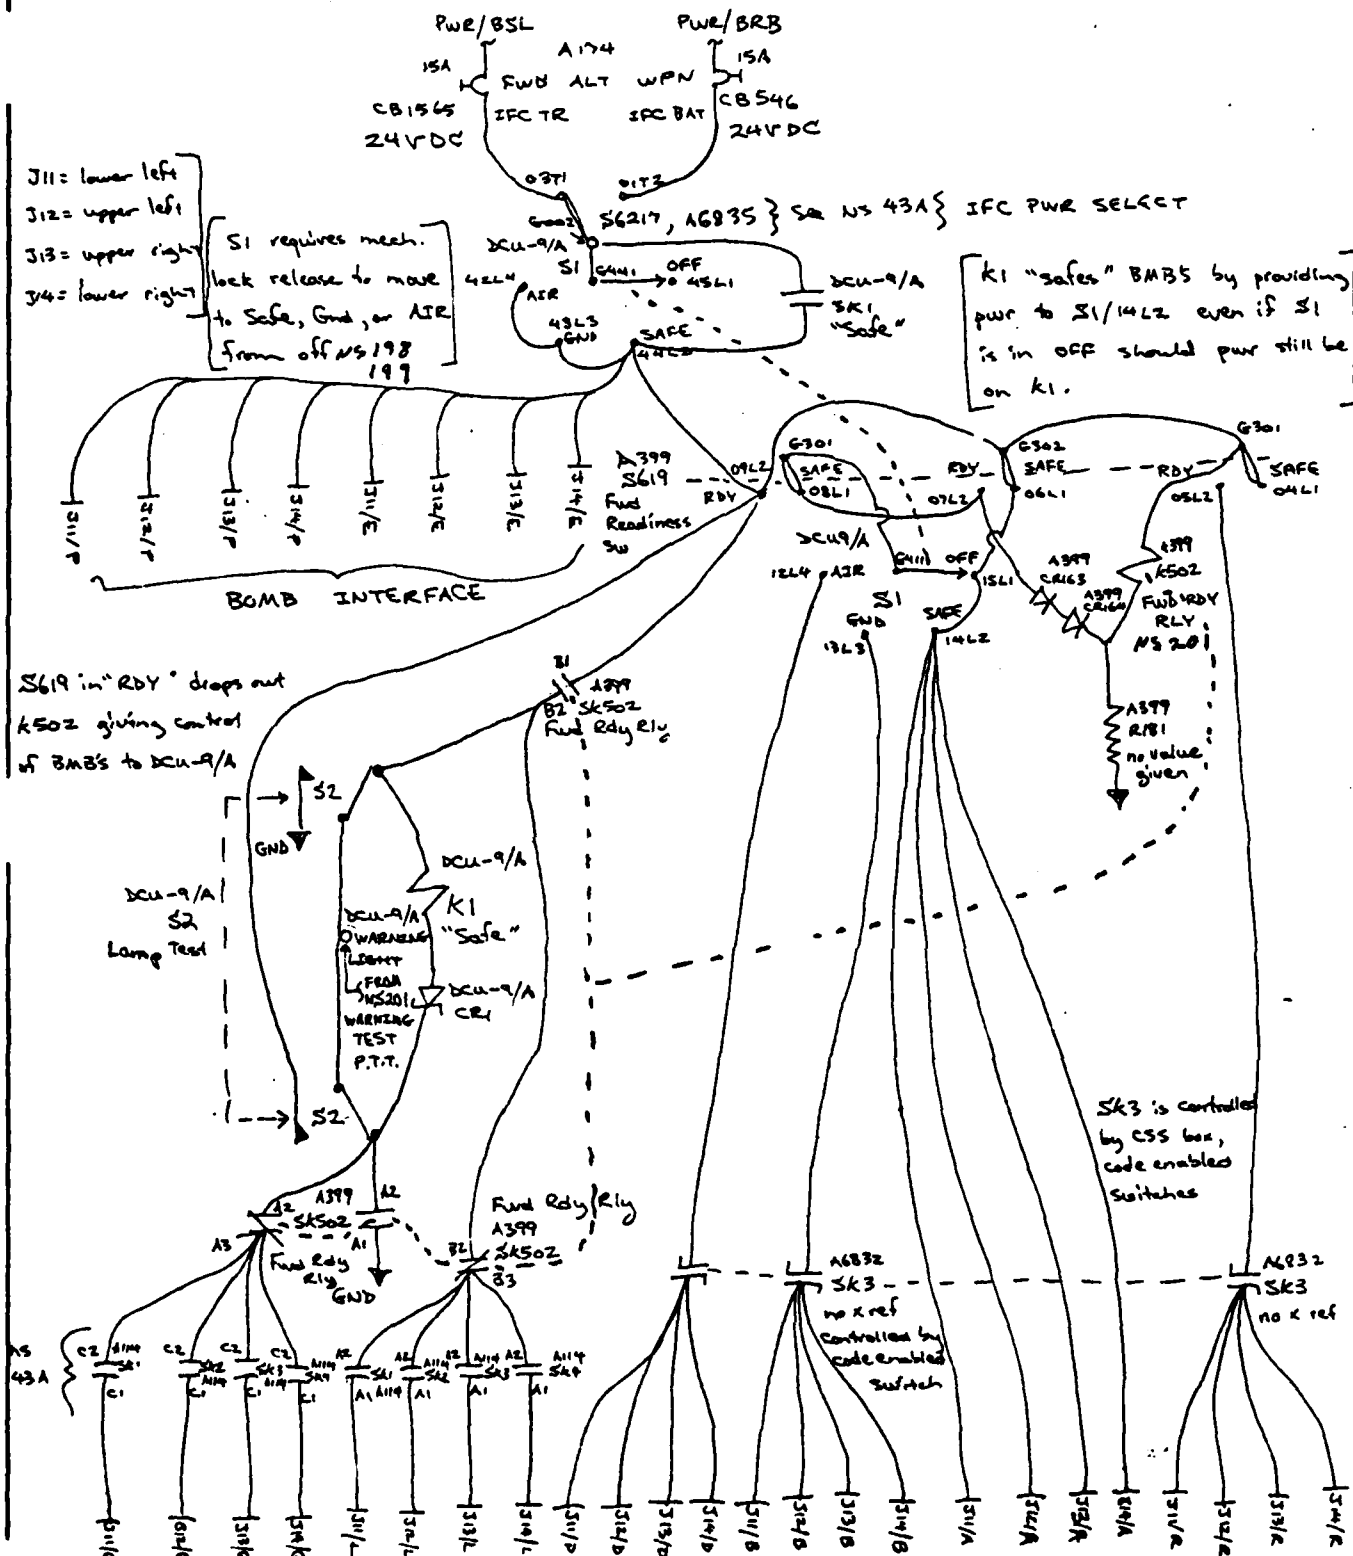 PWR/BSL
PWR/BRB
A174
15A
15A
FWD ALT WPN
CB1565
IFC TR
IFC BAT
CB546
24VDC
24VDC
J11= lower left
J12= upper left
J13= upper right
J14= lower right
S1 requires mech.
lock release to move
to Safe, Gnd, or AIR
from off NS 198
199
03T1
01T2
G002
S6217, A6835 } See NS 43A } IFC PWR SELECT
DCU-9/A
S1
G441
OFF
45L1
42L4
AIR
43L3
GND
SAFE
44L2
DCU-9/A
SK1
"Safe"
K1 "safes" BMB's by providing
pwr to S1/14L2 even if S1
is in OFF should pwr still be
on K1.
J11/P
J12/P
J13/P
J14/P
J11/E
J12/E
J13/E
J14/E
BOMB INTERFACE
A399
S619
Fwd
Readiness
SW
09L2
RDY
G301
SAFE
08L1
RDY
07L2
G302
SAFE
06L1
RDY
05L2
G301
SAFE
04L1
DCU9/A
12L4
AIR
G411
OFF
15L1
S1
GND
13L3
SAFE
14L2
A399
CR163
A399
CR164
A399
K502
FWD RDY
RLY
NS 201
A399
R181
no value
given
S619 in "RDY" drops out
K502 giving control
of BMB's to DCU-9/A
B1
A399
B2 SK502
Fwd Rdy Rly
S2
GND
DCU-9/A
S2
Lamp Test
DCU-9/A
K1
"Safe"
DCU-9/A
WARNING
LIGHT
FROM
NS201
WARNING
TEST
P.T.T.
DCU-9/A
CR1
S2
SK3 is controlled
by CSS box,
code enabled
switches
A2
A3
A399
SK502
Fwd Rdy
Rly
A2
A1
GND
Fwd Rdy Rly
A399
SK502
B2
B3
A6832
SK3
no x ref
controlled by
code enabled
switch
A6832
SK3
no x ref
NS
43A
C2 A114
SK1
C1
C2
SK2
A114
C1
C2
SK3
A114
C1
C2
A114
SK4
C1
A2
SK1
A1 A114
A2
A114
SK2
A1
A2
A114
SK3
A1
A2
A114
SK4
A1
J11/C
J12/C
J13/C
J14/C
J11/L
J12/L
J13/L
J14/L
J11/D
J12/D
J13/D
J14/D
J11/B
J12/B
J13/B
J14/B
J11/A
J12/A
J13/A
J14/A
J11/R
J12/R
J13/R
J14/R